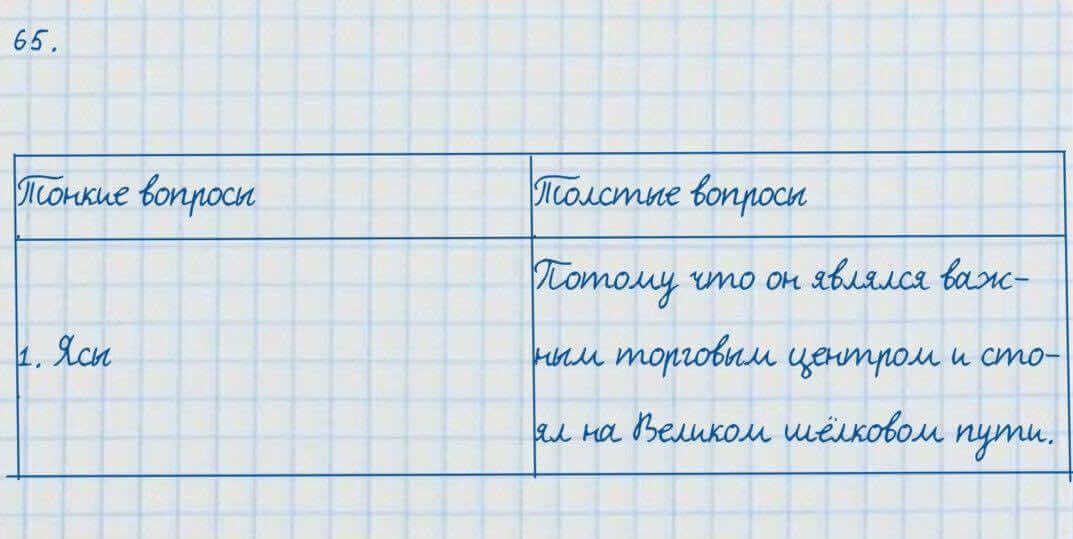 65.
Тонкие вопросы Толстые вопросы
Потому что он являлся важ-
1. Ясы ным торговым центром и сто-
ял на Великом шёлковом пути.